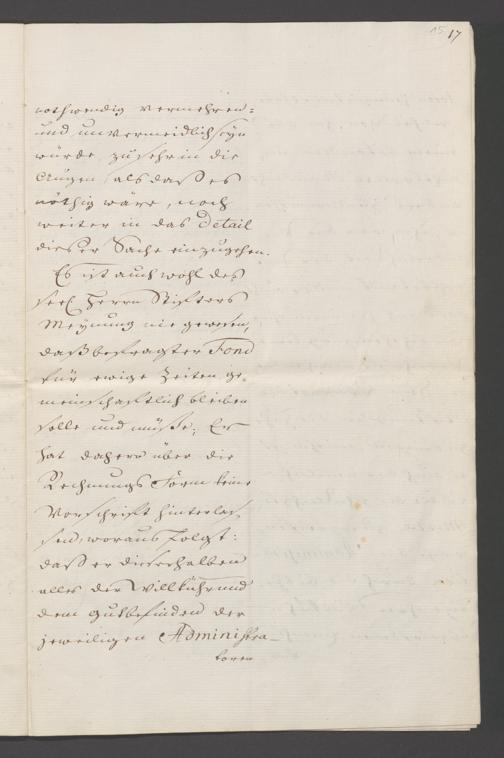 15 17
nothwendig vermehren=
und unvermeidlich seyn
würde, zu sehr in die
Augen, als daß es
nöthig wäre, noch
weiter in das Detail
dieser Sache einzugehen.
Es ist auch wohl des
seel. Herrn Stifters
Meynung nie gewesen,
daß besagter Fond
für ewige Zeiten ge-
meinschaftlich bleiben
solle und müsse; Er
hat dahero über die
Rechnungs Form keine
Vorschrift hinterlas-
sen, woraus folgt:
daß er dieserhalben
alles der Willkühr und
dem Gutbefinden der
jeweiligen Administra-
toren